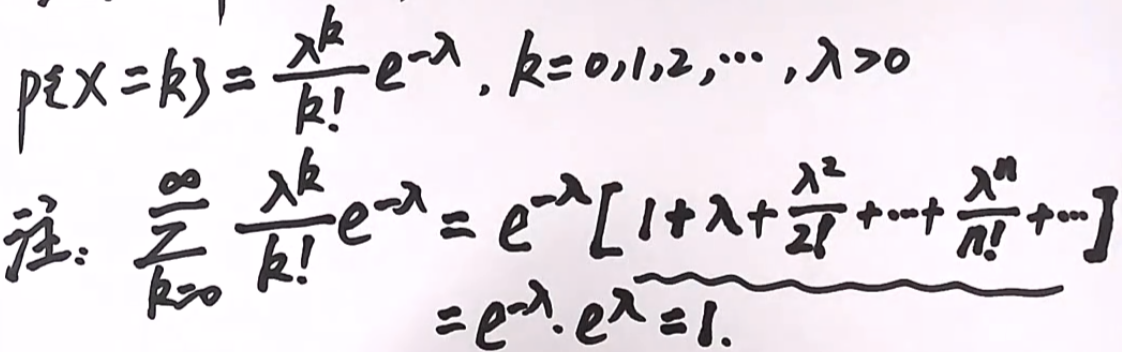 P{X=k}=λ^k/k! e^{-λ}, k=0,1,2,⋯,λ>0
注: ∑_{k=0}^{∞} λ^k/k! e^{-λ} = e^{-λ}[1+λ+λ^2/2!+⋯+λ^n/n!+⋯]
=e^{-λ}·e^λ=1.